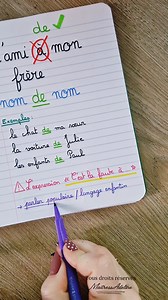 de ✓
l'ami à mon
frère
nom de nom
Exemples :
le chat de ma sœur
la voiture de Julie
les enfants de Paul
⚠ L'expression « C'est la faute à... »
→ parler populaire / langage enfantin
Tous droits réservés